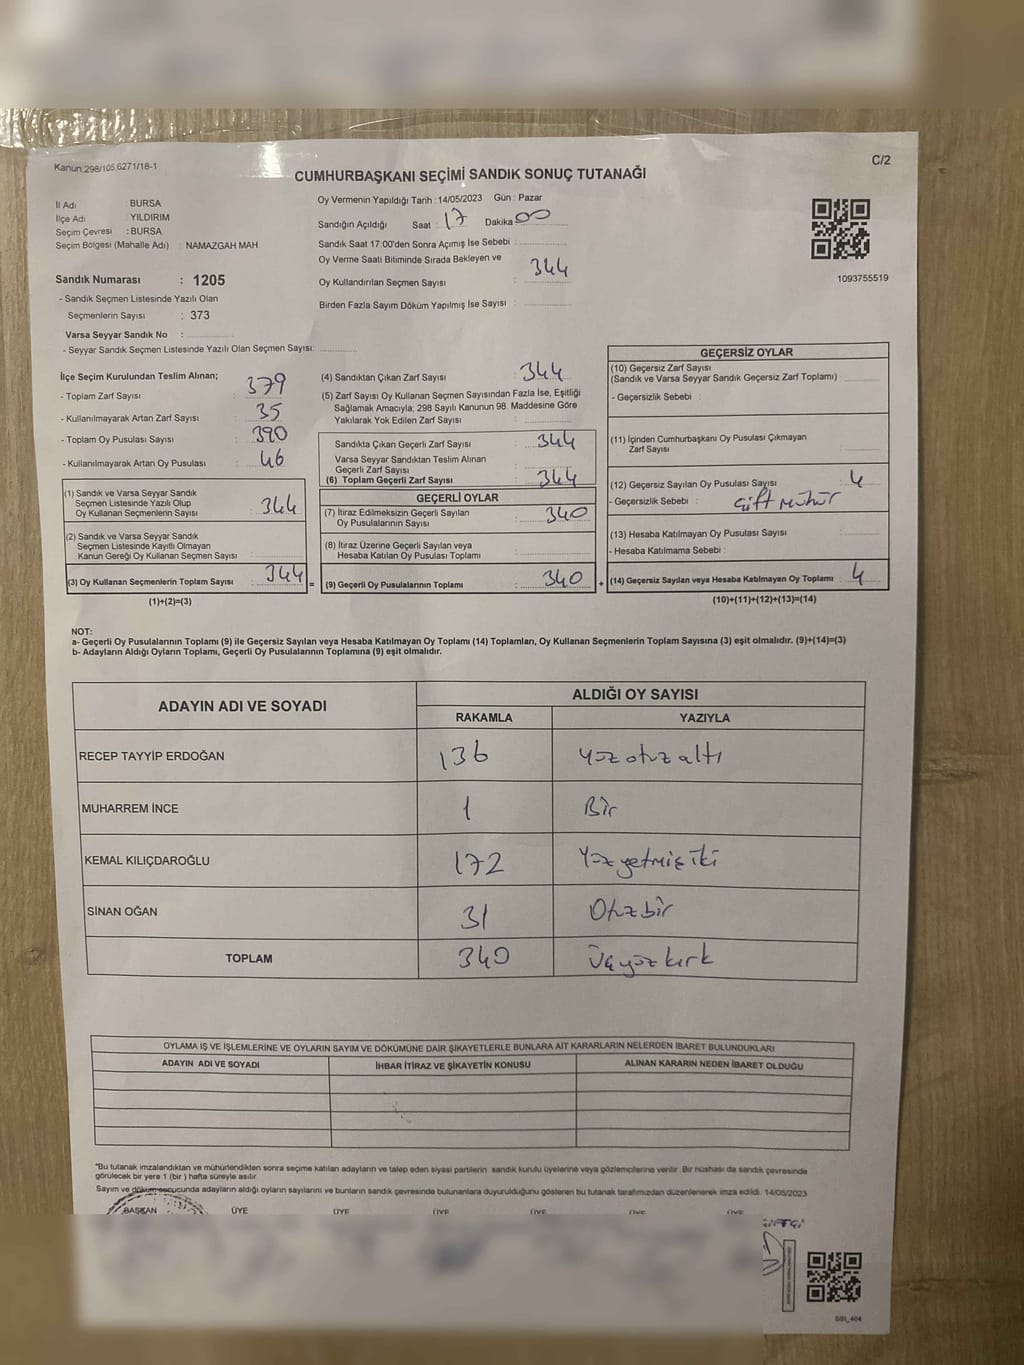 Kanun:298/105,6271/18-1
C/2
CUMHURBAŞKANI SEÇİMİ SANDIK SONUÇ TUTANAĞI
İl Adı : BURSA
İlçe Adı : YILDIRIM
Seçim Çevresi : BURSA
Seçim Bölgesi (Mahalle Adı) : NAMAZGAH MAH
Oy Vermenin Yapıldığı Tarih : 14/05/2023 Gün : Pazar
Sandığın Açıldığı Saat : 17 Dakika 00
Sandık Saat 17.00'den Sonra Açımış İse Sebebi :
Oy Verme Saati Bitiminde Sırada Bekleyen ve
Oy Kullandırılan Seçmen Sayısı : 344
Birden Fazla Sayım Döküm Yapılmış İse Sayısı :
1093755519
Sandık Numarası : 1205
- Sandık Seçmen Listesinde Yazılı Olan
Seçmenlerin Sayısı : 373
Varsa Seyyar Sandık No :
- Seyyar Sandık Seçmen Listesinde Yazılı Olan Seçmen Sayısı:
İlçe Seçim Kurulundan Teslim Alınan;
- Toplam Zarf Sayısı : 379
- Kullanılmayarak Artan Zarf Sayısı : 35
- Toplam Oy Pusulası Sayısı : 390
- Kullanılmayarak Artan Oy Pusulası : 46
(1) Sandık ve Varsa Seyyar Sandık
Seçmen Listesinde Yazılı Olup
Oy Kullanan Seçmenlerin Sayısı : 344
(2) Sandık ve Varsa Seyyar Sandık
Seçmen Listesinde Kayıtlı Olmayan
Kanun Gereği Oy Kullanan Seçmen Sayısı :
(3) Oy Kullanan Seçmenlerin Toplam Sayısı : 344 =
(1)+(2)=(3)
(4) Sandıktan Çıkan Zarf Sayısı : 344
(5) Zarf Sayısı Oy Kullanan Seçmen Sayısından Fazla İse, Eşitliği
Sağlamak Amacıyla; 298 Sayılı Kanunun 98. Maddesine Göre
Yakılarak Yok Edilen Zarf Sayısı :
Sandıkta Çıkan Geçerli Zarf Sayısı : 344
Varsa Seyyar Sandıktan Teslim Alınan
Geçerli Zarf Sayısı :
(6) Toplam Geçerli Zarf Sayısı : 344
GEÇERLİ OYLAR
(7) İtiraz Edilmeksizin Geçerli Sayılan
Oy Pusulalarının Sayısı : 340
(8) İtiraz Üzerine Geçerli Sayılan veya
Hesaba Katılan Oy Pusulası Toplamı :
(9) Geçerli Oy Pusulalarının Toplamı : 340 +
GEÇERSİZ OYLAR
(10) Geçersiz Zarf Sayısı
(Sandık ve Varsa Seyyar Sandık Geçersiz Zarf Toplamı) :
- Geçersizlik Sebebi :
(11) İçinden Cumhurbaşkanı Oy Pusulası Çıkmayan
Zarf Sayısı :
(12) Geçersiz Sayılan Oy Pusulası Sayısı : 4
- Geçersizlik Sebebi : Çift Mühür
(13) Hesaba Katılmayan Oy Pusulası Sayısı :
- Hesaba Katılmama Sebebi :
(14) Geçersiz Sayılan veya Hesaba Katılmayan Oy Toplamı : 4
(10)+(11)+(12)+(13)=(14)
NOT:
a- Geçerli Oy Pusulalarının Toplamı (9) ile Geçersiz Sayılan veya Hesaba Katılmayan Oy Toplamı (14) Toplamları, Oy Kullanan Seçmenlerin Toplam Sayısına (3) eşit olmalıdır. (9)+(14)=(3)
b- Adayların Aldığı Oyların Toplamı, Geçerli Oy Pusulalarının Toplamına (9) eşit olmalıdır.
ADAYIN ADI VE SOYADI ALDIĞI OY SAYISI
RAKAMLA YAZIYLA
RECEP TAYYİP ERDOĞAN 136 Yüz otuz altı
MUHARREM İNCE 1 Bir
KEMAL KILIÇDAROĞLU 172 Yüz yetmiş iki
SİNAN OĞAN 31 Otuz bir
TOPLAM 340 Üç yüz kırk
OYLAMA İŞ VE İŞLEMLERİNE VE OYLARIN SAYIM VE DÖKÜMÜNE DAİR ŞİKAYETLERLE BUNLARA AİT KARARLARIN NELERDEN İBARET BULUNDUKLARI
ADAYIN ADI VE SOYADI İHBAR İTİRAZ VE ŞİKAYETİN KONUSU ALINAN KARARIN NEDEN İBARET OLDUĞU
*Bu tutanak imzalandıktan ve mühürlendikten sonra seçime katılan adayların ve talep eden siyasi partilerin sandık kurulu üyelerine veya gözlemcilerine verilir. Bir nüshası da sandık çevresinde
görülecek bir yere 1 (bir ) hafta süreyle asılır.
Sayım ve döküm sonucunda adayların aldığı oyların sayılarını ve bunların sandık çevresinde bulunanlara duyurulduğunu gösteren bu tutanak tarafımızdan düzenlenerek imza edildi. 14/05/2023
BAŞKAN ÜYE ÜYE ÜYE ÜYE ÜYE ÜYE